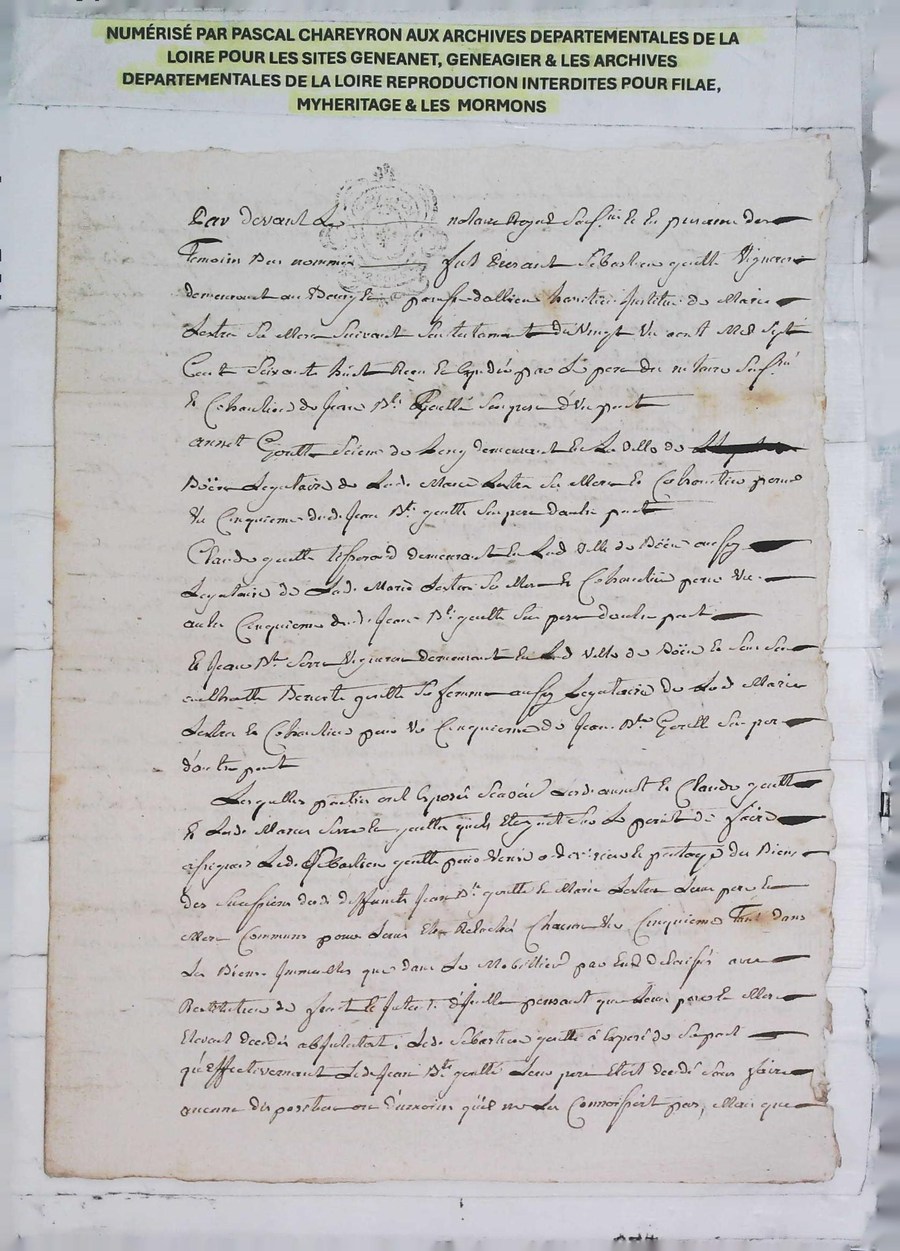 NUMÉRISÉ PAR PASCAL CHAREYRON AUX ARCHIVES DEPARTEMENTALES DE LA
LOIRE POUR LES SITES GENEANET, GENEAGIER & LES ARCHIVES
DEPARTEMENTALES DE LA LOIRE REPRODUCTION INTERDITES POUR FILAE,
MYHERITAGE & LES MORMONS
Par devant Le notaire Royal Sous.né et en presence des
Temoins Bas nommés fut Present Sebastien goutte Vigneron
demeurant au Bourg et parroisse dallieu heritier Institué de Marie
Lestra Sa Mere Suivant Son testament du Vingt Un aout Mil Sept
Cent Soixante huit Reçu et Expedié par Le pere du notaire Sous.né
Et Coheritier de Jean Bte Goutte Son pere d'Une part
annet Goutte de demeurant En La Ville de
Boën Legataire de Lade Marie Lestra Sa Mere Et Coheritier pour
Un Cinquieme dud Jean Bte goutte Son pere d'autre part
Claude goutte demeurant En Lad Ville de Boën aussy
Legataire de Lade Marie Lestra Sa Mere Et Coheritier pour Un
autre Cinquieme dud Jean Bte goutte Son pere d'autre part
Et Jean Bte Serre Vigneron demeurant En Lad Ville de Boën Et Sous Son
authorité Benoite goutte Sa femme aussy Legataire de Lad Marie
Lestra Et Coheritiere pour Un Cinquieme de Jean Bte Goutte Son pere
d'autre part
Lesquelles parties ont Exposé Scavoir Lesd annet Et Claude goutte
Et Lesd Mariés Serre Et goutte qu'ils Etoient Sur Le point de faire
assigner Led Sebastien goutte pour Venir a division Et partage des Biens
des Successions desd deffuncts Jean Bte goutte Et Marie Lestra Leurs pere Et
Mere Communs pour Leur Etre Relaché Chacun Un Cinquieme Tant dans
Les Biens Immeubles que dans Le Mobillier par Eux delaissés avec
Restitution de fruits Et Interets d'Iceux pensant que Leurs pere Et Mere
Etoient decedés abintestat. Led Sebastien goutte à Exposé de Sa part
qu'Effectivement Led Jean Bte goutte Leur pere Etoit decedé Sans faire
aucune disposition ou du moins qu'il ne Les Connoissoit pas, Mais que